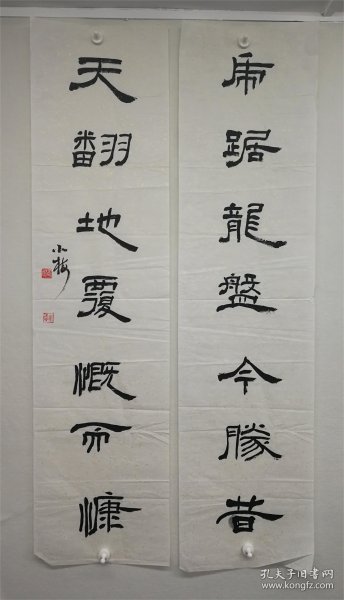 虎踞龍盤今勝昔
天翻地覆慨而慷
小梅
孔夫子旧书网
www.kongfz.com